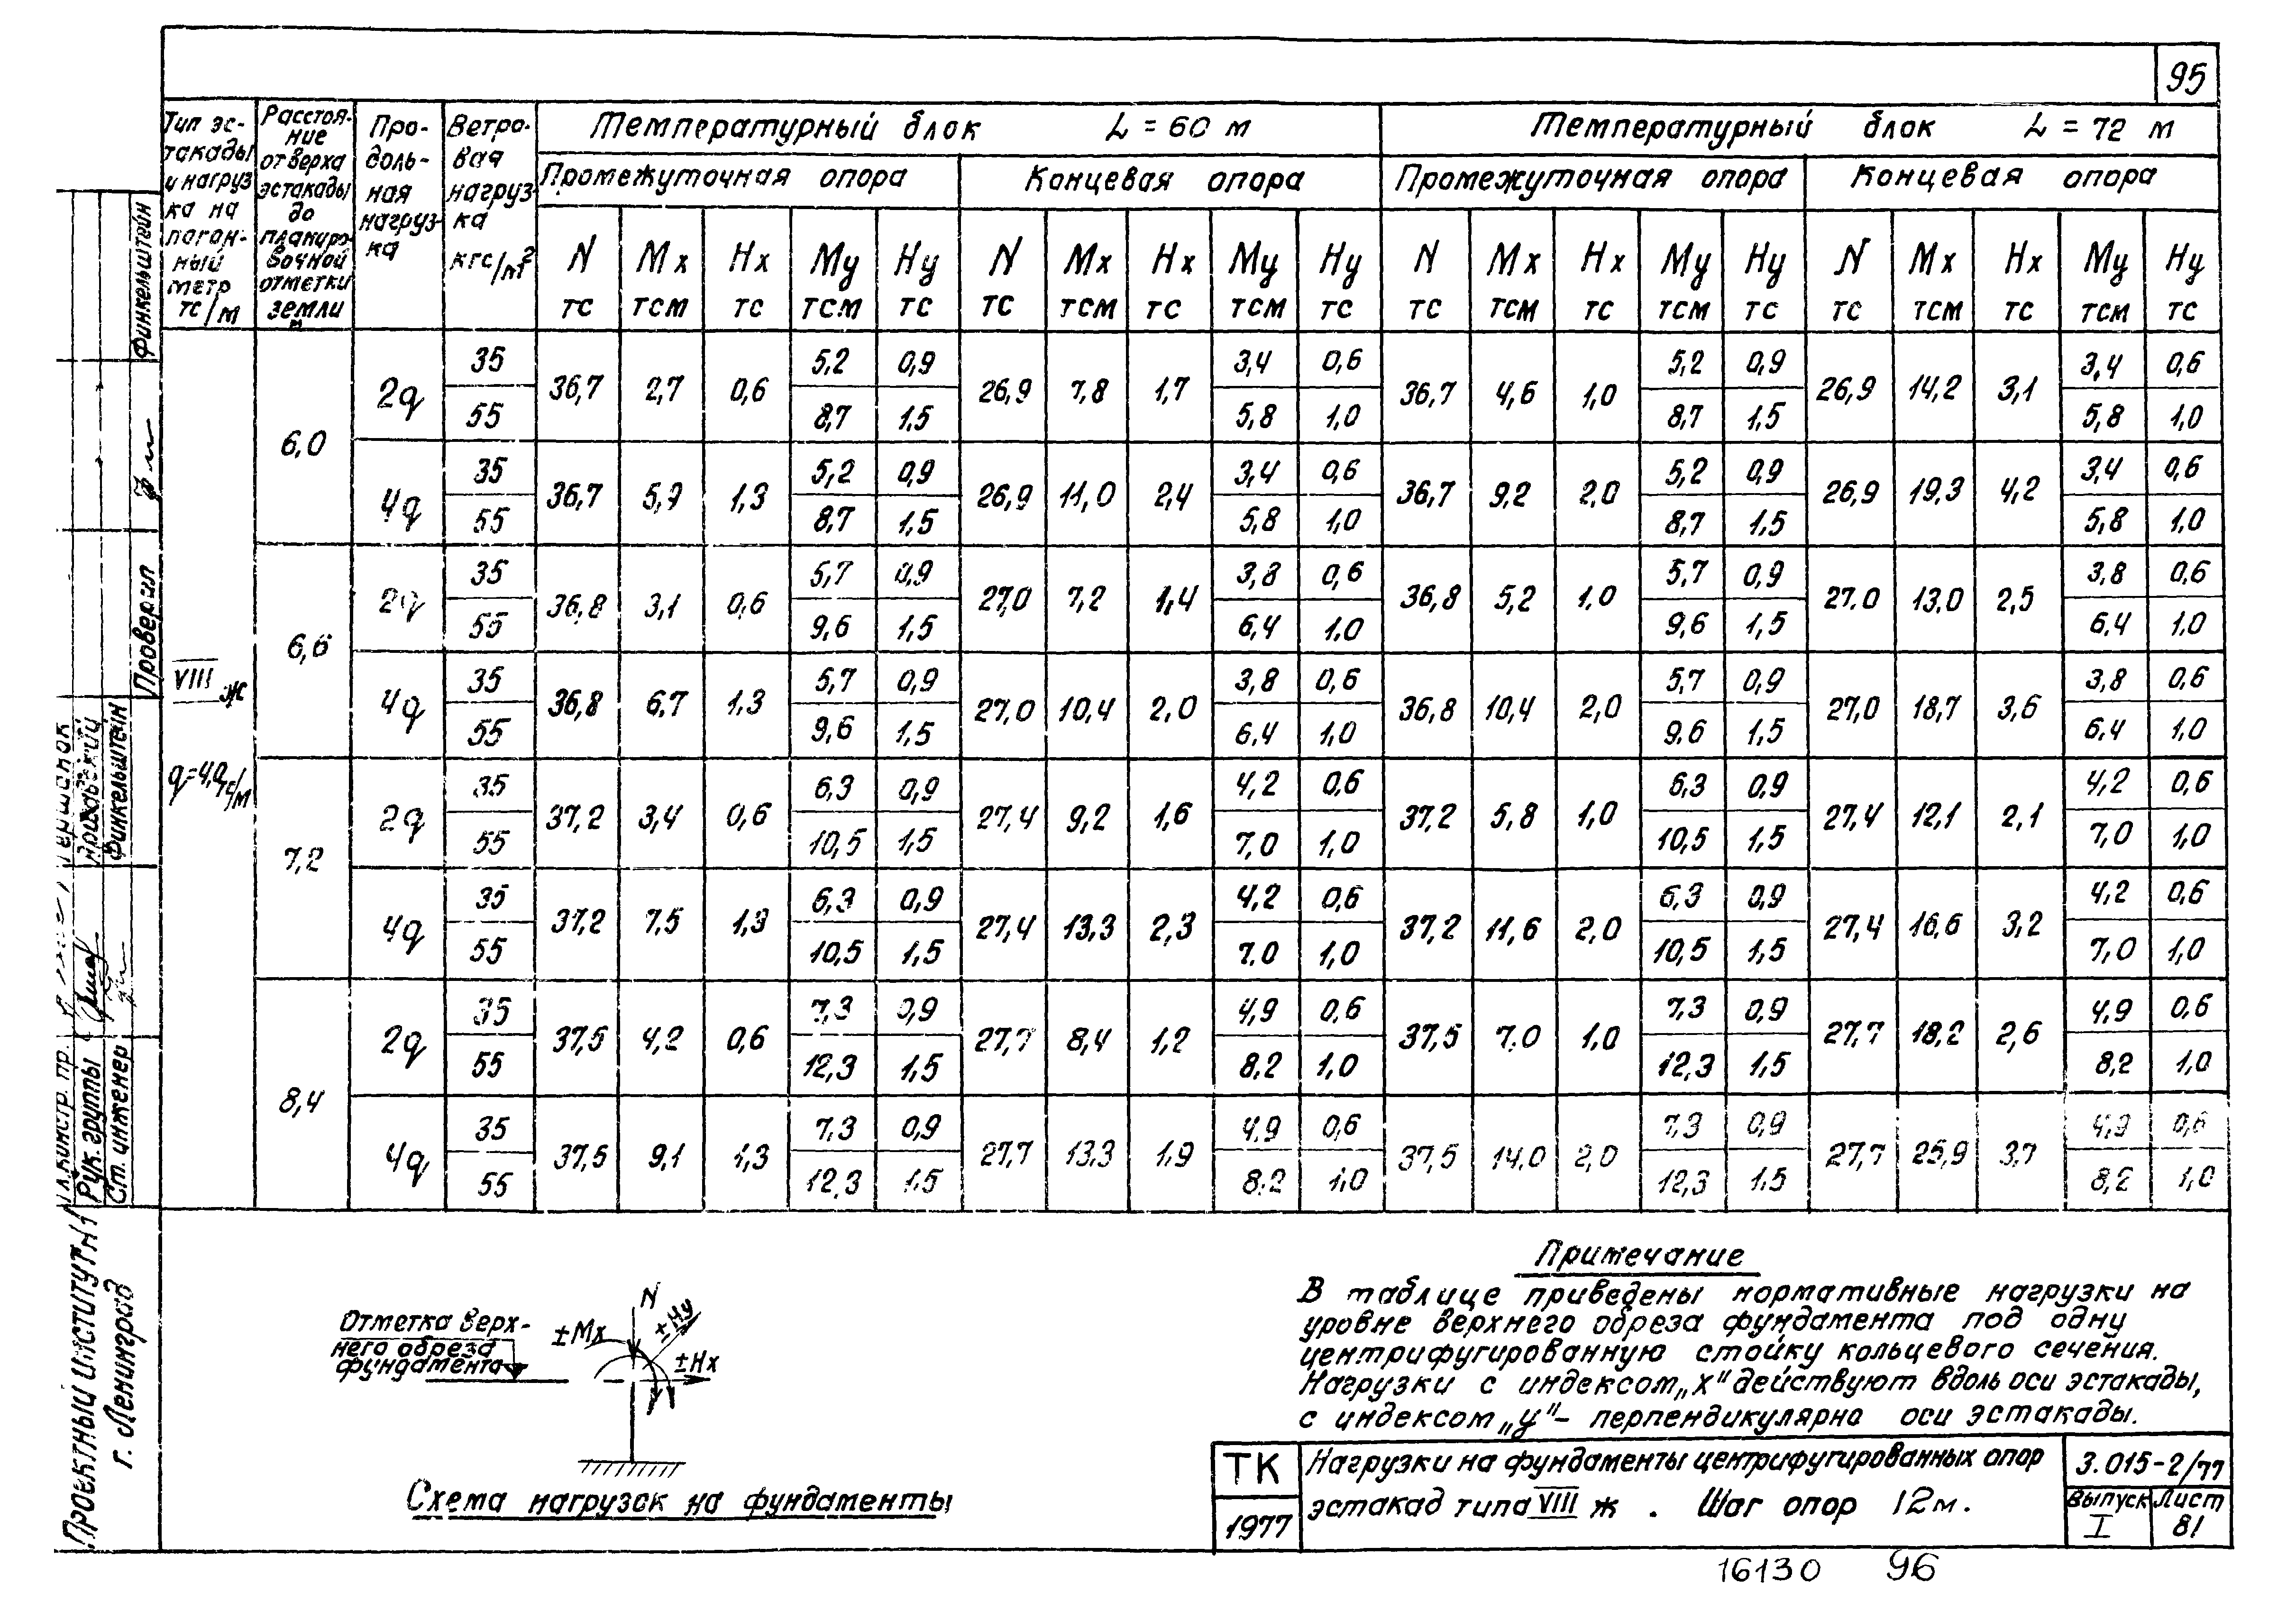 95
Тип эс-
такады
и нагруз
ка на
погон-
ный
метр
тс/м
Расстоя-
ние
от верха
эстакады
до
планиро-
вочной
отметки
земли
м
Про-
доль-
ная
нагруз-
ка
Ветро-
вая
нагруз-
ка
кгс/м²
Температурный блок L = 60 м
Температурный блок L = 72 м
Промежуточная опора
Концевая опора
Промежуточная опора
Концевая опора
N Mx Hx My Hy N Mx Hx My Hy N Mx Hx My Hy N Mx Hx My Hy
тс тсм тс тсм тс тс тсм тс тсм тс тс тсм тс тсм тс тс тсм тс тсм тс
VIII ж
q=4,0 тс/м
6,0
2q
35 5,2 0,9 3,4 0,6 5,2 0,9 3,4 0,6
36,7 2,7 0,6 26,9 7,8 1,7 36,7 4,6 1,0 26,9 14,2 3,1
55 8,7 1,5 5,8 1,0 8,7 1,5 5,8 1,0
4q
35 5,2 0,9 3,4 0,6 5,2 0,9 3,4 0,6
36,7 5,9 1,3 26,9 11,0 2,4 36,7 9,2 2,0 26,9 19,3 4,2
55 8,7 1,5 5,8 1,0 8,7 1,5 5,8 1,0
6,6
2q
35 5,7 0,9 3,8 0,6 5,7 0,9 3,8 0,6
36,8 3,1 0,6 27,0 7,2 1,4 36,8 5,2 1,0 27.0 13,0 2,5
55 9,6 1,5 6,4 1.0 9,6 1,5 6,4 1.0
4q
35 5,7 0,9 3,8 0,6 5,7 0,9 3,8 0,6
36,8 6,7 1,3 27,0 10,4 2,0 36,8 10,4 2,0 27,0 18,7 3,6
55 9,6 1,5 6,4 1,0 9,6 1,5 6,4 1,0
7,2
2q
35 6,3 0,9 4,2 0,6 6,3 0,9 4,2 0,6
37,2 3,4 0,6 27,4 9,2 1,6 37,2 5,8 1,0 27,4 12,1 2,1
55 10,5 1,5 7,0 1,0 10,5 1,5 7,0 1,0
4q
35 6,3 0,9 4,2 0,6 6,3 0,9 4,2 0,6
37,2 7,5 1,3 27,4 13,3 2,3 37,2 11,6 2,0 27,4 16,6 3,2
55 10,5 1,5 7.0 1,0 10,5 1,5 7,0 1,0
8,4
2q
35 7,3 0,9 4,9 0,6 7,3 0,9 4,9 0,6
37,5 4,2 0,6 27,7 8,4 1,2 37,5 7,0 1,0 27,7 18,2 2,6
55 12,3 1,5 8,2 1,0 12,3 1,5 8,2 1,0
4q
35 7,3 0,9 4,9 0,6 7,3 0,9 4,9 0,6
37,5 9,1 1,3 27,7 13,3 1,9 37,5 14,0 2,0 27,7 25,9 3,7
55 12,3 1,5 8,2 1,0 12,3 1,5 8,2 1,0
Отметка верх-
него обреза
фундамента
N
±Mx
±Hy
±Hx
Схема нагрузок на фундаменты
Примечание
В таблице приведены нормативные нагрузки на
уровне верхнего обреза фундамента под одну
центрифугированную стойку кольцевого сечения.
Нагрузки с индексом „х" действуют вдоль оси эстакады,
с индексом „у"- перпендикулярно оси эстакады.
ТК
1977
Нагрузки на фундаменты центрифугированных опор
эстакад типа VIII ж . Шаг опор 12 м.
3.015-2/77
Выпуск
I
Лист
81
16130 96
Проектный институт №1
г. Ленинград
Гл.констр. пр.
Рук. группы
Ст. инженер
Финкельштейн
Проверил
Финкельштейн